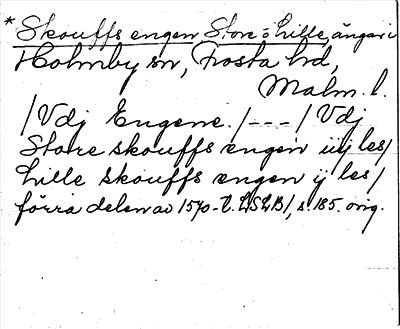 * Skouffs engen Store o Lille, ängar i
Holmby sn, Frosta hd,
Malm. l.
/Vdj Engene./---/Vdj
Store skouffs engen iiij les/
Lille skouffs engen ij les/
förra delen av 1570-t. LSLB/, s. 185. orig.